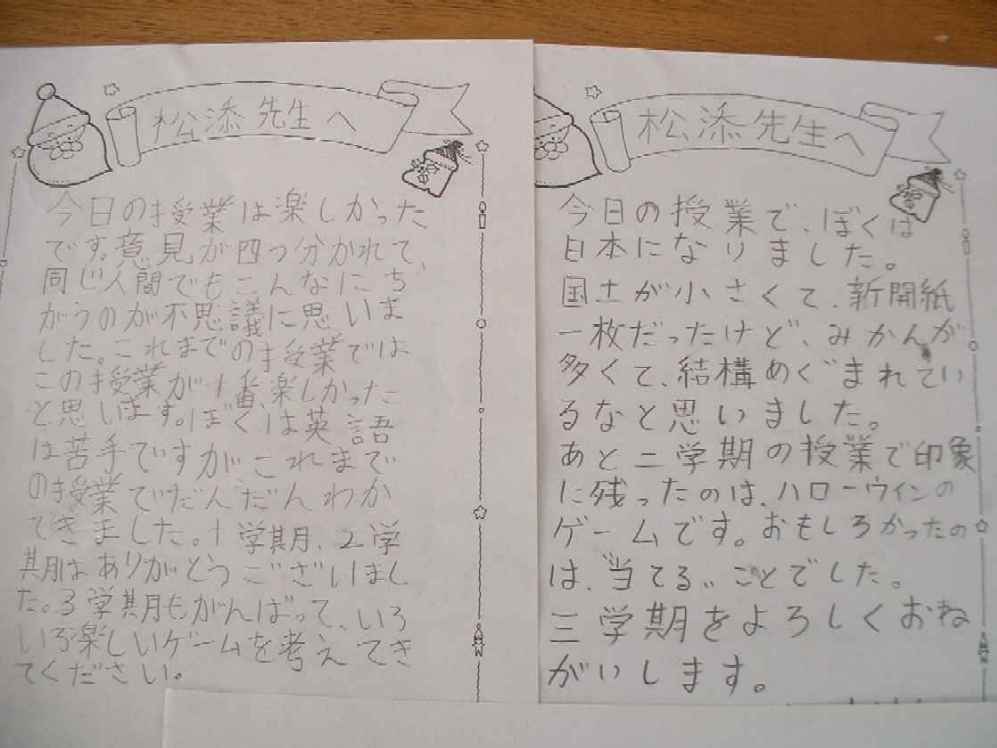 松添先生へ
今日の授業は楽しかった
です。意見が四つ分かれて、
同じ人間でもこんなにち
がうのが不思議に思いま
した。これまでの授業では
この授業が1番、楽しかった
と思います。ぼくは英語
は苦手ですが、これまで
の授業でだんだんわか
てきました。1学期、2学
期はありがとうございまし
た。3学期もがんばって、いろ
いろ楽しいゲームを考えてき
てください。
松添先生へ
今日の授業で、ぼくは
日本になりました。
国土が小さくて、新聞紙
一枚だったけど、みかんが
多くて、結構めぐまれてい
るなと思いました。
あと二学期の授業で印象
に残ったのは、ハローウィンの
ゲームです。おもしろかったの
は、"当てる"ことでした。
三学期をよろしくおね
がいします。